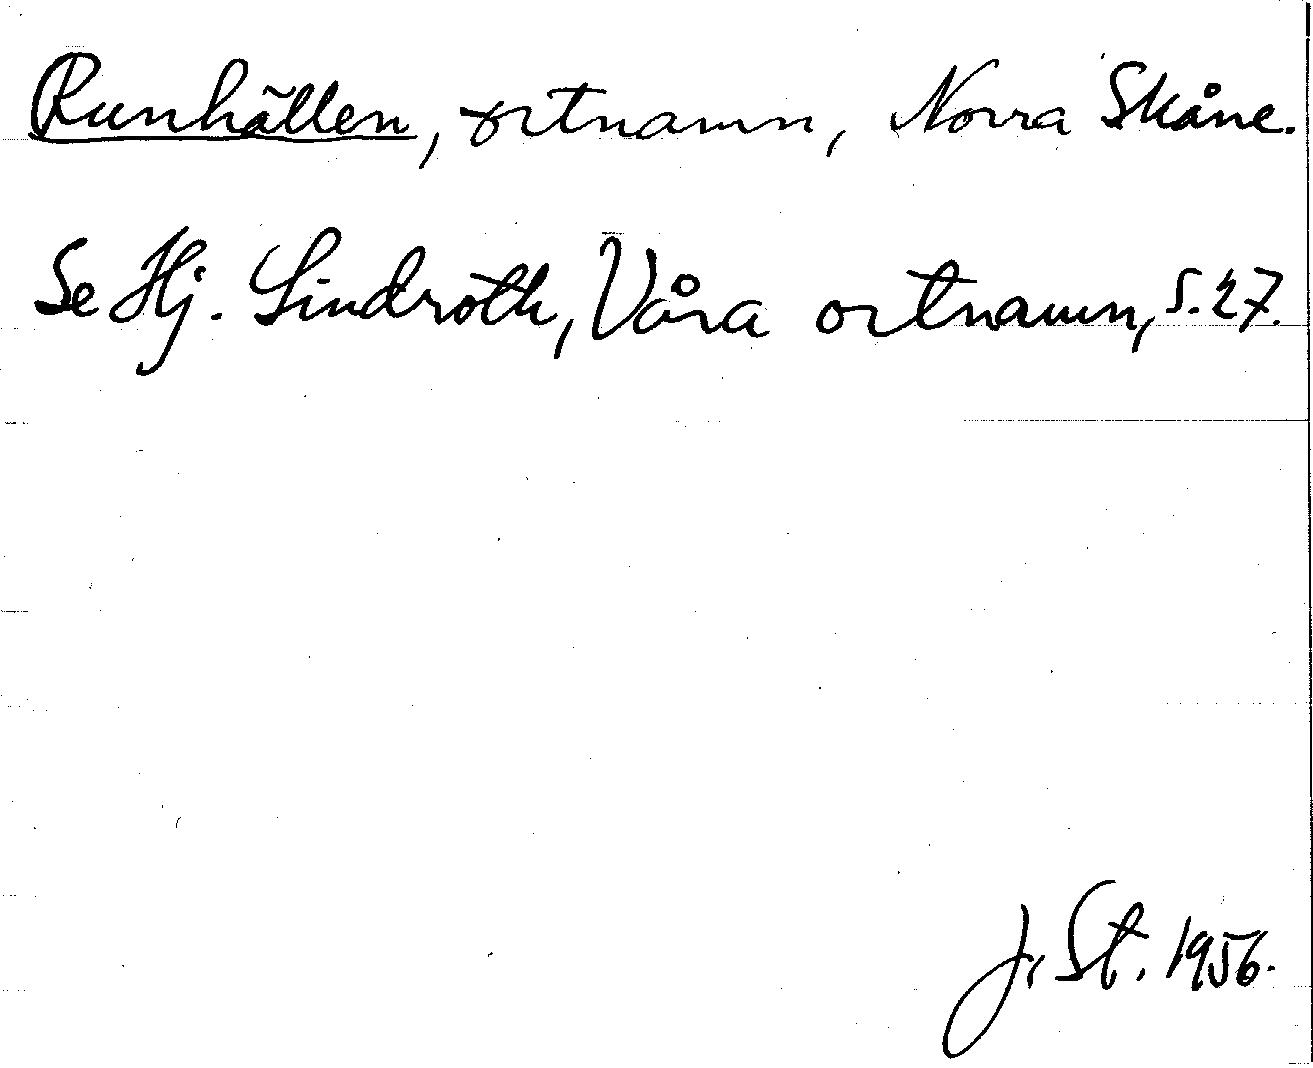 Runhällen, ortnamn, Norra Skåne.
Se Hj. Lindroth, Våra ortnamn, s. 27.
J. St. 1956.